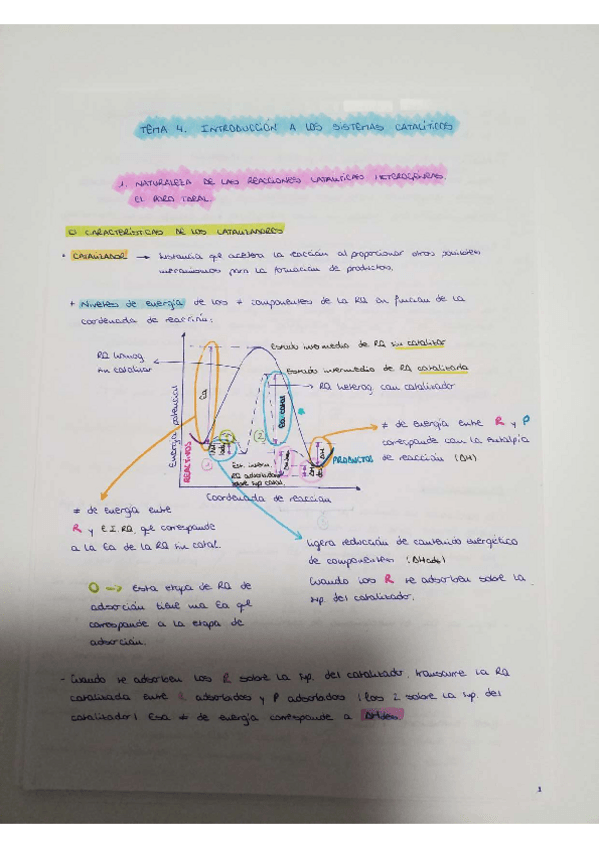 TEMA 4. INTRODUCCIÓN A LOS SISTEMAS CATALÍTICOS
1. NATURALEZA DE LAS REACCIONES CATALÍTICAS HETEROGÉNEAS.
EL PORO
CARACTERÍSTICAS DE LOS CATALIZADORES
CATALIZADOR → sustancia qe acelera la reacción al proporcionar otros posibles
mecanismos para la formación de productos.
* Niveles de energía de los ≠ componentes de la RQ en función de la
coordenada de reacción:
Estado intermedio de RQ sin catalizar
RQ homog
sin catalizar
Estado intermedio de RQ catalizada
RQ heterog con catalizador
Energía potencial
Ea
Ea catal
1
2
ΔH
REACTIVOS
PRODUCTOS
Coordenada de reacción
≠ de energía entre R y P
corresponde con la entalpía
de reacción (ΔH)
≠ de energía entre
R y E.I. RQ, qe corresponde
a la Ea de la RQ sin catal.
ligera reducción de contenido energético
de componentes (ΔHads)
Cuando los R se adsorben sobre la
sup. del catalizador.
O --> Esta etapa de RQ de
adsorción tiene una Ea qe
corresponde a la etapa de
adsorción.
- Cuando se adsorben los R sobre la sup. del catalizador, transcurre la RQ
catalizada entre R adsorbidos y P adsorbidos (los 2 sobre la sup. del
catalizador). Esa ≠ de energía corresponde a
1